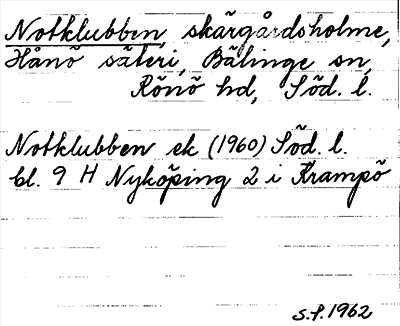 Notklubben, skärgårdsholme,
Hånö säteri, Bälinge sn,
Rönö hd, Söd. l.
Notklubben ek (1960) Söd. l.
bl. 9 H Nyköping 2 i Krampö
S.P. 1962